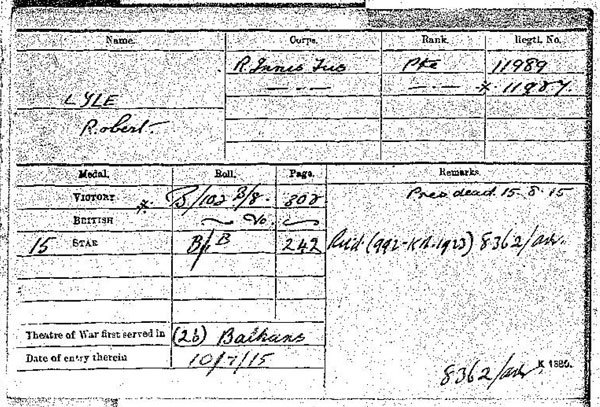 Name. Corps. Rank. Regtl. No.
R. Innis Fus Pte 11989
LYLE — " — — " — * 11987.
Robert
Medal. Roll. Page. Remarks.
VICTORY * B/102 B/8. 802 Pres dead. 15.8.15
BRITISH — Do —
15 STAR B 242 Ret'd. (992-KR.1923) 8362/adr.
Theatre of War first served in (2b) Balkans
Date of entry therein 10/7/15
8362/adr. K 1380.